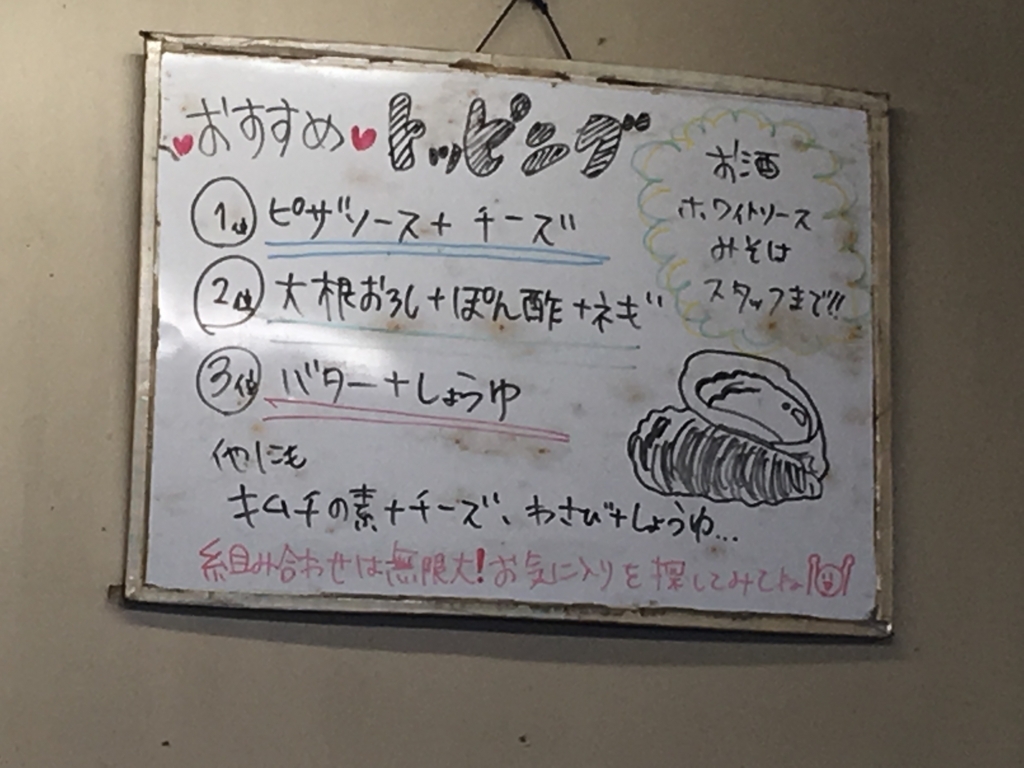 おすすめ トッピング
1位 ピザソース+チーズ
2位 大根おろし+ぽん酢+ネギ
3位 バター+しょうゆ
他にも
キムチの素+チーズ、わさび+しょうゆ...
組み合わせは無限大!お気に入りを探してみてね
お酒
ホワイトソース
みそは
スタッフまで!!